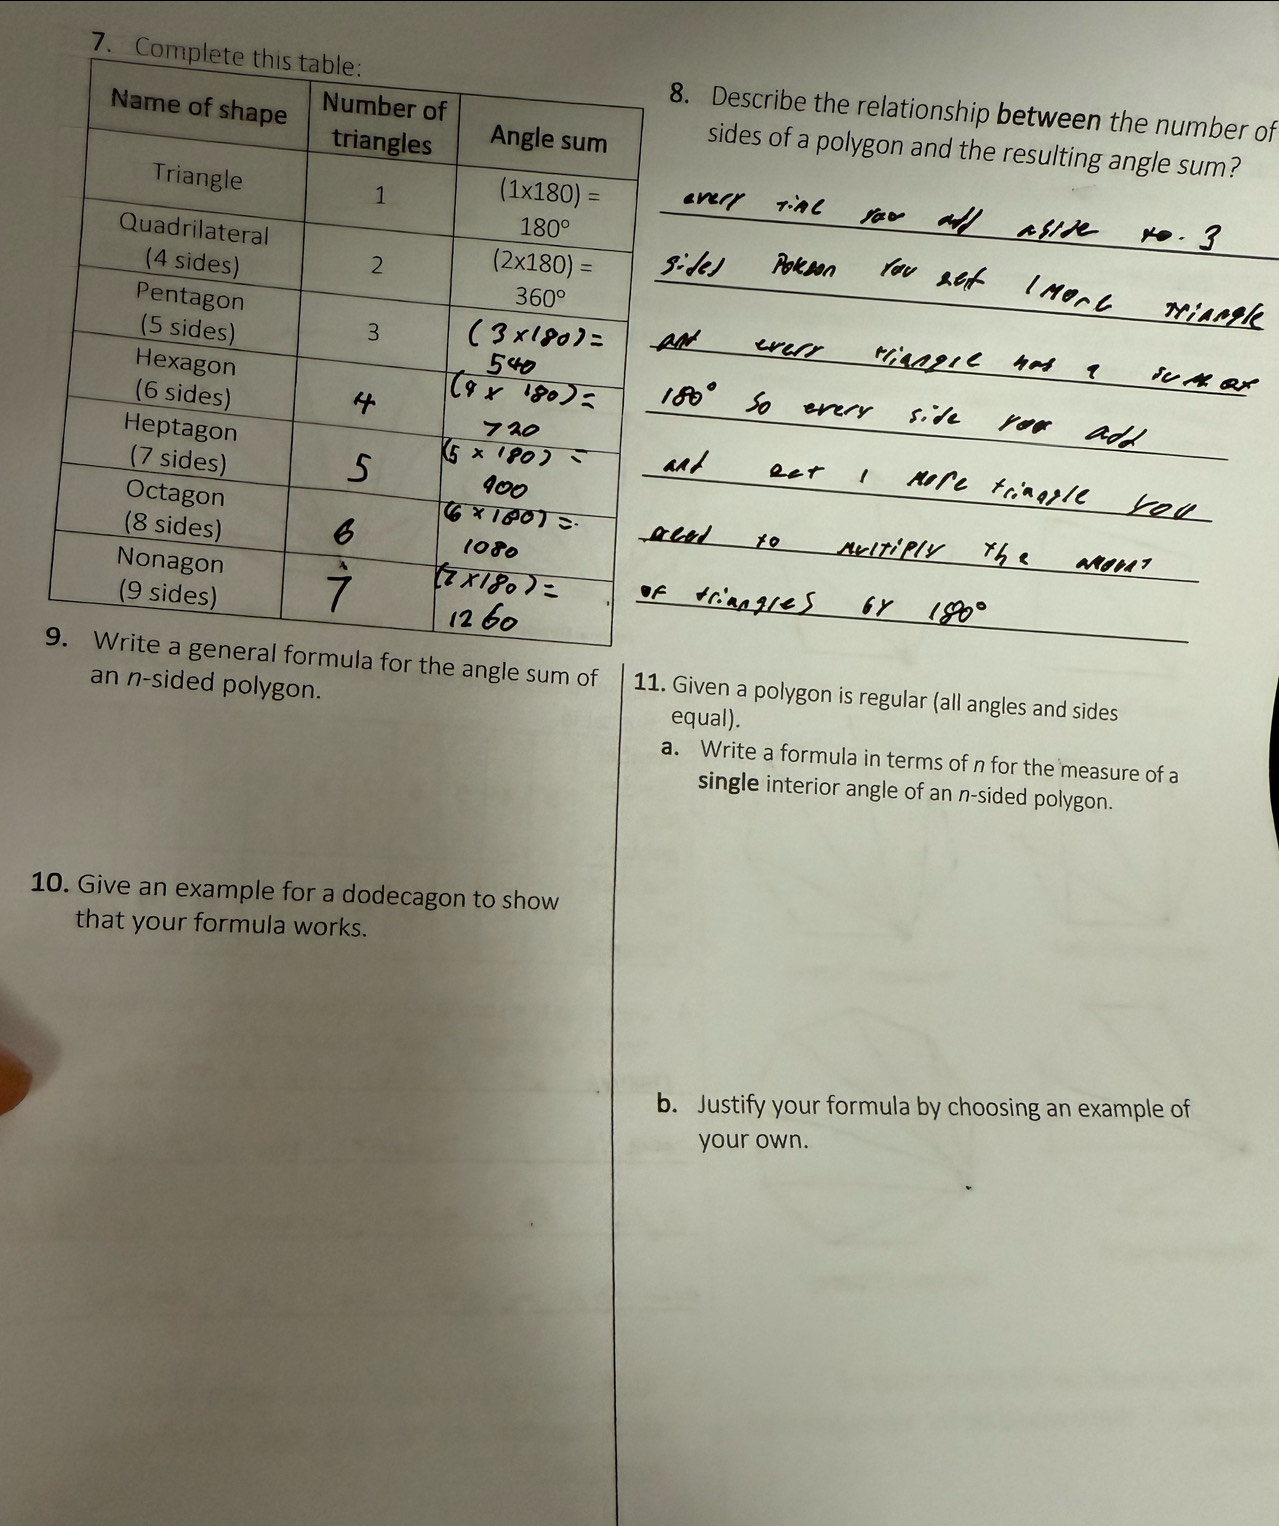 7. Complete this table:
Name of shape
Number of
triangles
Angle sum
Triangle
1
(1x180) =
180°
Quadrilateral
(4 sides)
2
(2x180) =
360°
Pentagon
(5 sides)
3
(3x180)=
540
Hexagon
(6 sides)
4
(4 x 180)=
720
Heptagon
(7 sides)
5
(5 x 180) =
900
Octagon
(8 sides)
6
(6 x 180) =
1080
Nonagon
(9 sides)
7
(7 x180)=
1260
8. Describe the relationship between the number of
sides of a polygon and the resulting angle sum?
every time you add a side to. 3
sided You get 1 more triangle
and every triangle has a sum of
180° so every side you add
and get 1 more triangle you
need to multiply the
of triangles by 180°
9. Write a general formula for the angle sum of
an n-sided polygon.
10. Give an example for a dodecagon to show
that your formula works.
11. Given a polygon is regular (all angles and sides
equal).
a. Write a formula in terms of n for the measure of a
single interior angle of an n-sided polygon.
b. Justify your formula by choosing an example of
your own.